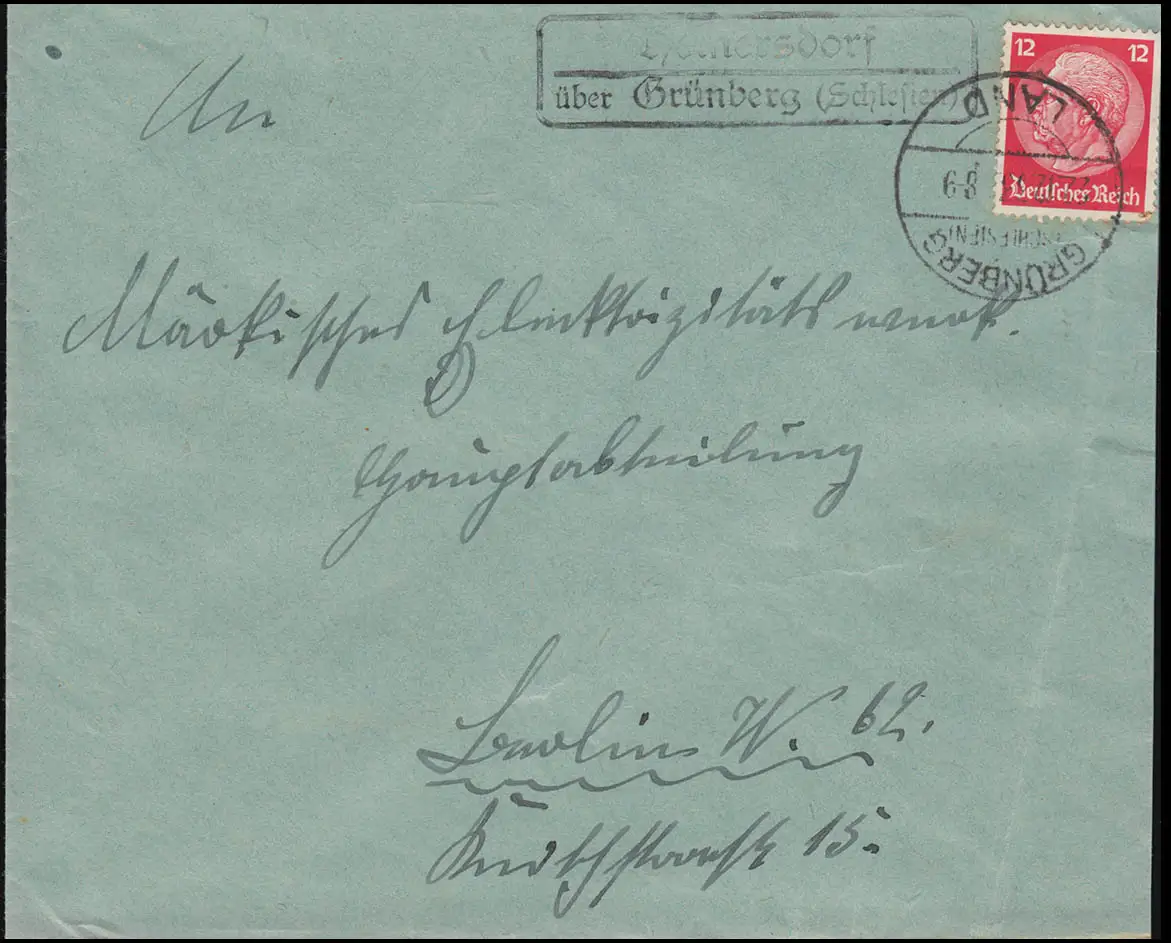 Heinersdorf
über Grünberg (Schlesien)
12 12
Deutsches Reich
GRÜNBERG
(SCHLESIEN)
LAND
An
Märkisches Elektrizitätswerk.
Hauptabteilung
Berlin W. 62.
Keithstraße 15.